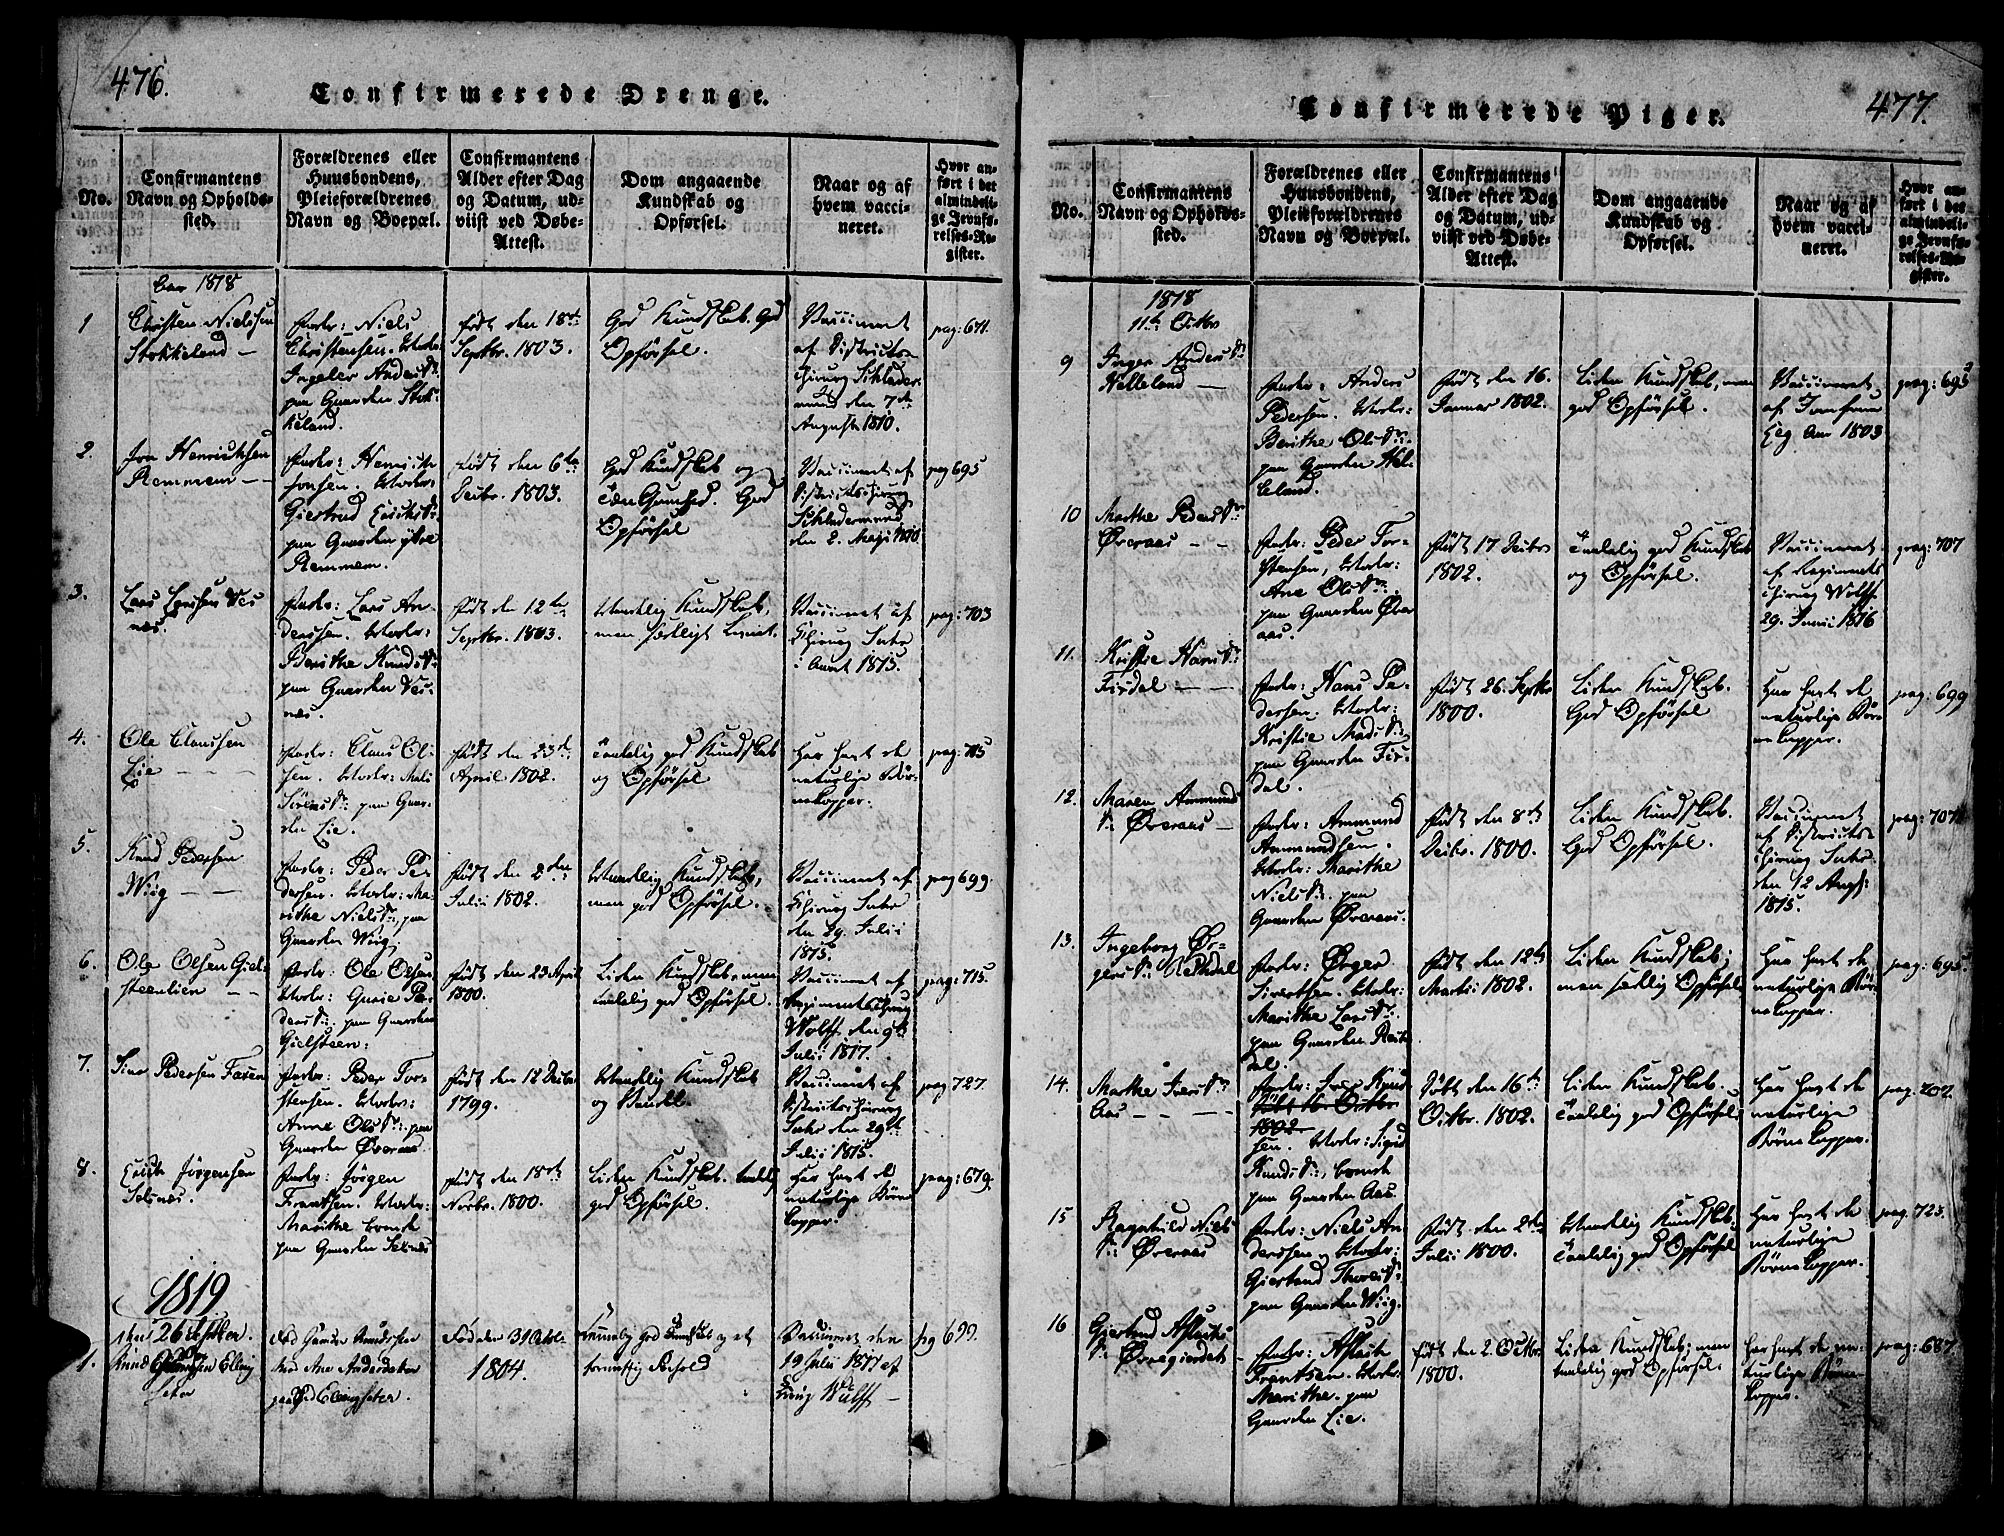 476.
Confirmerede Drenge.
No.
Confirmantens
Navn og Opholds-
sted.
Forældrenes eller
Huusbondens,
Pleieforældrenes
Navn og Boepæl.
Confirmantens
Alder efter Dag
og Datum, ud-
viist ved Døbe-
Attest.
Dom angaaende
Kundskab og
Opførsel.
Naar og af
hvem vacci-
neret.
Hvor an-
ført i det
almindeli-
ge Jevnfø-
relses-Re-
gister.
1818
1
Christen Nielssen
Stokkeland —
Fader: Niels
Christensen. Moder:
Ingeler Anders Dr:
paa Gaarden Stok-
keland.
født den 18de
Septbr. 1803.
God Kundskab. God
Opførsel.
Vaccineret
af Districts
Chirurg Schlader-
mund den 7de
August 1810.
pag: 671.
2.
Jon Henrichsen
Remmem —
Fader: Henrich
Jonsen. Moder:
Giertrud Erichs Dr:
paa Gaarden
Remmem.
født den 6te
Decbr. 1803.
God Kundskab og
God
Opførsel
Vaccineret af
Districts Chirurg
Schladermund
den 2. Maji 1810
pag 695
3.
Lars Larssen Ves
nes.
Fader: Lars An-
derssen. Moder:
Berithe Knuds Dr:
paa Gaarden Ves-
nes.
født den 12te
Septbr. 1803.
Maadelig Kundskab,
men
Vaccineret af
Chirurg Suhr
i Aaret 1815.
pag: 703
4.
Ole Claussen
Lie — —
Fader: Claus Ol-
sen. Moder: Mali
Sørens Dr: paa Gaar-
den Lie.
født den 23de
April 1802.
Taalelig god Kundskab
og Opførsel
Har havt de
naturlige Bør-
nekopper.
pag: 715
5.
Knud Pedersen
Wiig — —
Fader: Peder Pe-
dersen. Moder: Ma-
rithe Niels Dr: paa
Gaarden Wiig.
født den 2den
Julii 1802.
Maadelig Kundskab,
men god Opførsel.
Vaccineret af
Chirurg Suhr
den 29. Julii
1815.
pag 699.
6.
Ole Olsen Giel-
steenlien — —
Fader: Ole Olsen
Moder: Gurie Pe-
ders Dr: paa Gaarden
Gielsteen:
født den 23 April
1800.
Liden Kundskab, men
taalelig god Opførsel.
Vaccineret af
Regiments Chirurg
Wolff, den 9de
Julii 1817.
pag: 715.
7.
Siver Pedersen Faren
Fader: Peder Tor-
stensen. Moder:
Anne Ols Dr: paa
Gaarden Øveraas
født den 12 Decbr
1799.
Maadelig Kundskab
og
Vaccineret af
Districts Chirurg
Suhr den 29de
Julii 1815.
pag 727.
8.
Erich Jørgensen
Setnes.
Fader: Jørgen
Frantsen. Moder:
Marithe
paa Gaarden Setnes
født den 18de
Novbr. 1800.
Liden Kundskab.
god Opførsel.
Har havt de
naturlige Børne
kopper.
pag: 679.
1819
den 26 Septber.
1.
Knud Elling
seter
Ane Andersdatter
paa Ellingseter.
Fød den 31
1804.
Temmelig god Kundskab og et
fornuftig Forhold
Vaccineret den
19 Julii 1817 af
Chirurg Wulff —
pg 699.
477.
Confirmerede Piger.
No.
Confirmantens
Navn og Opholds-
sted.
Forældrenes eller
Huusbondens,
Pleieforældrenes
Navn og Boepæl.
Confirmantens
Alder efter Dag
og Datum, ud-
viist ved Døbe-
Attest.
Dom angaaende
Kundskab og
Opførsel.
Naar og af
hvem vacci-
neret.
Hvor an-
ført i det
almindeli-
ge Jevnfø-
relses-Re-
gister.
1818
11te Octbr
9
Inger Anders Dr:
Helleland —
Fader: Anders
Pedersen. Moder:
Berithe Ols Dr:
paa Gaarden Hel-
leland.
født den 16.
Januar 1802.
Liden Kundskab, men
god Opførsel.
Vaccineret
af Jomfrue
Eeg Aar 1803
pag: 695
10
Marthe Peders Dr:
Øveraas — —
Fader: Peder Tor-
stensen, Moder:
Ane Ols Dr:
paa Gaarden Øver
aas.
født 17 Decbr
1802.
Taalelig god Kundskab
og Opførsel.
Vaccineret
af Regiments
Chirurg Wolff
29. Junii 1816
pag: 707
11.
Kristie Hans Dr:
Firdel — —
Fader: Hans Pe-
dersen. Moder:
Kristie Mads Dr:
paa Gaarden Fir-
del.
født 26. Septbr
1800.
Liden Kundskab.
God Opførsel
Har havt de
naturlige Bør-
nekopper.
pag: 699
12.
Maren Ammund
Dr: Øveraas —
Fader: Ammund
Ammundsen.
Moder: Marithe
Niels Dr: paa
Gaarden Øveraas.
født den 8de
Decbr. 1800.
Liden Kundskab.
God Opførsel.
Vaccineret
af Districts
Chirurg Suhr.
den 12 Augst
1815.
pag: 707
13.
Ingeborg Ør-
gers Dr: Rethdal
Fader: Ørger
Siverthsen. Moder:
Marithe Lars Dr:
paa Gaarden Reth-
dal.
født den 12te
Martii 1802.
Liden Kundskab;
men sædelig Opførsel
Har havt de
naturlige Bør-
nekopper.
pag: 695.
14.
Marthe Ivers Dr:
Aas — — —
Fader: Iver Knud
født 16. Octbr
1802
sen. Moder: Sigrid
Knuds Dr:
paa Gaarden Aas.
Født den 16de
Octbr. 1802.
Liden Kundskab.
Taalelig god Opførsel.
Har havt de
naturlige
Børnekopper.
pag: 707.
15
Ragnhild Niels
Dr: Øveraas
Fader: Niels An-
derssen, Moder:
Giertrud Thores Dr:
paa Gaarden Wiig.
født den 2den
Julii 1800.
Maadelig Kundskab.
Taalelig god Opførsel
Har havt de
naturlige
Børnekopper.
pag. 723.
16
Giertrud Aslachs
Dr: Øvregierdet —
Fader: Aslach
Frantsen. Moder:
Marithe. paa
Gaarden Lie.
født den 2. Octbr.
1800.
Liden Kundskab; men
taalelig god Opførsel.
har havt de na-
turlige Børne-
kopper.
pag: 687.